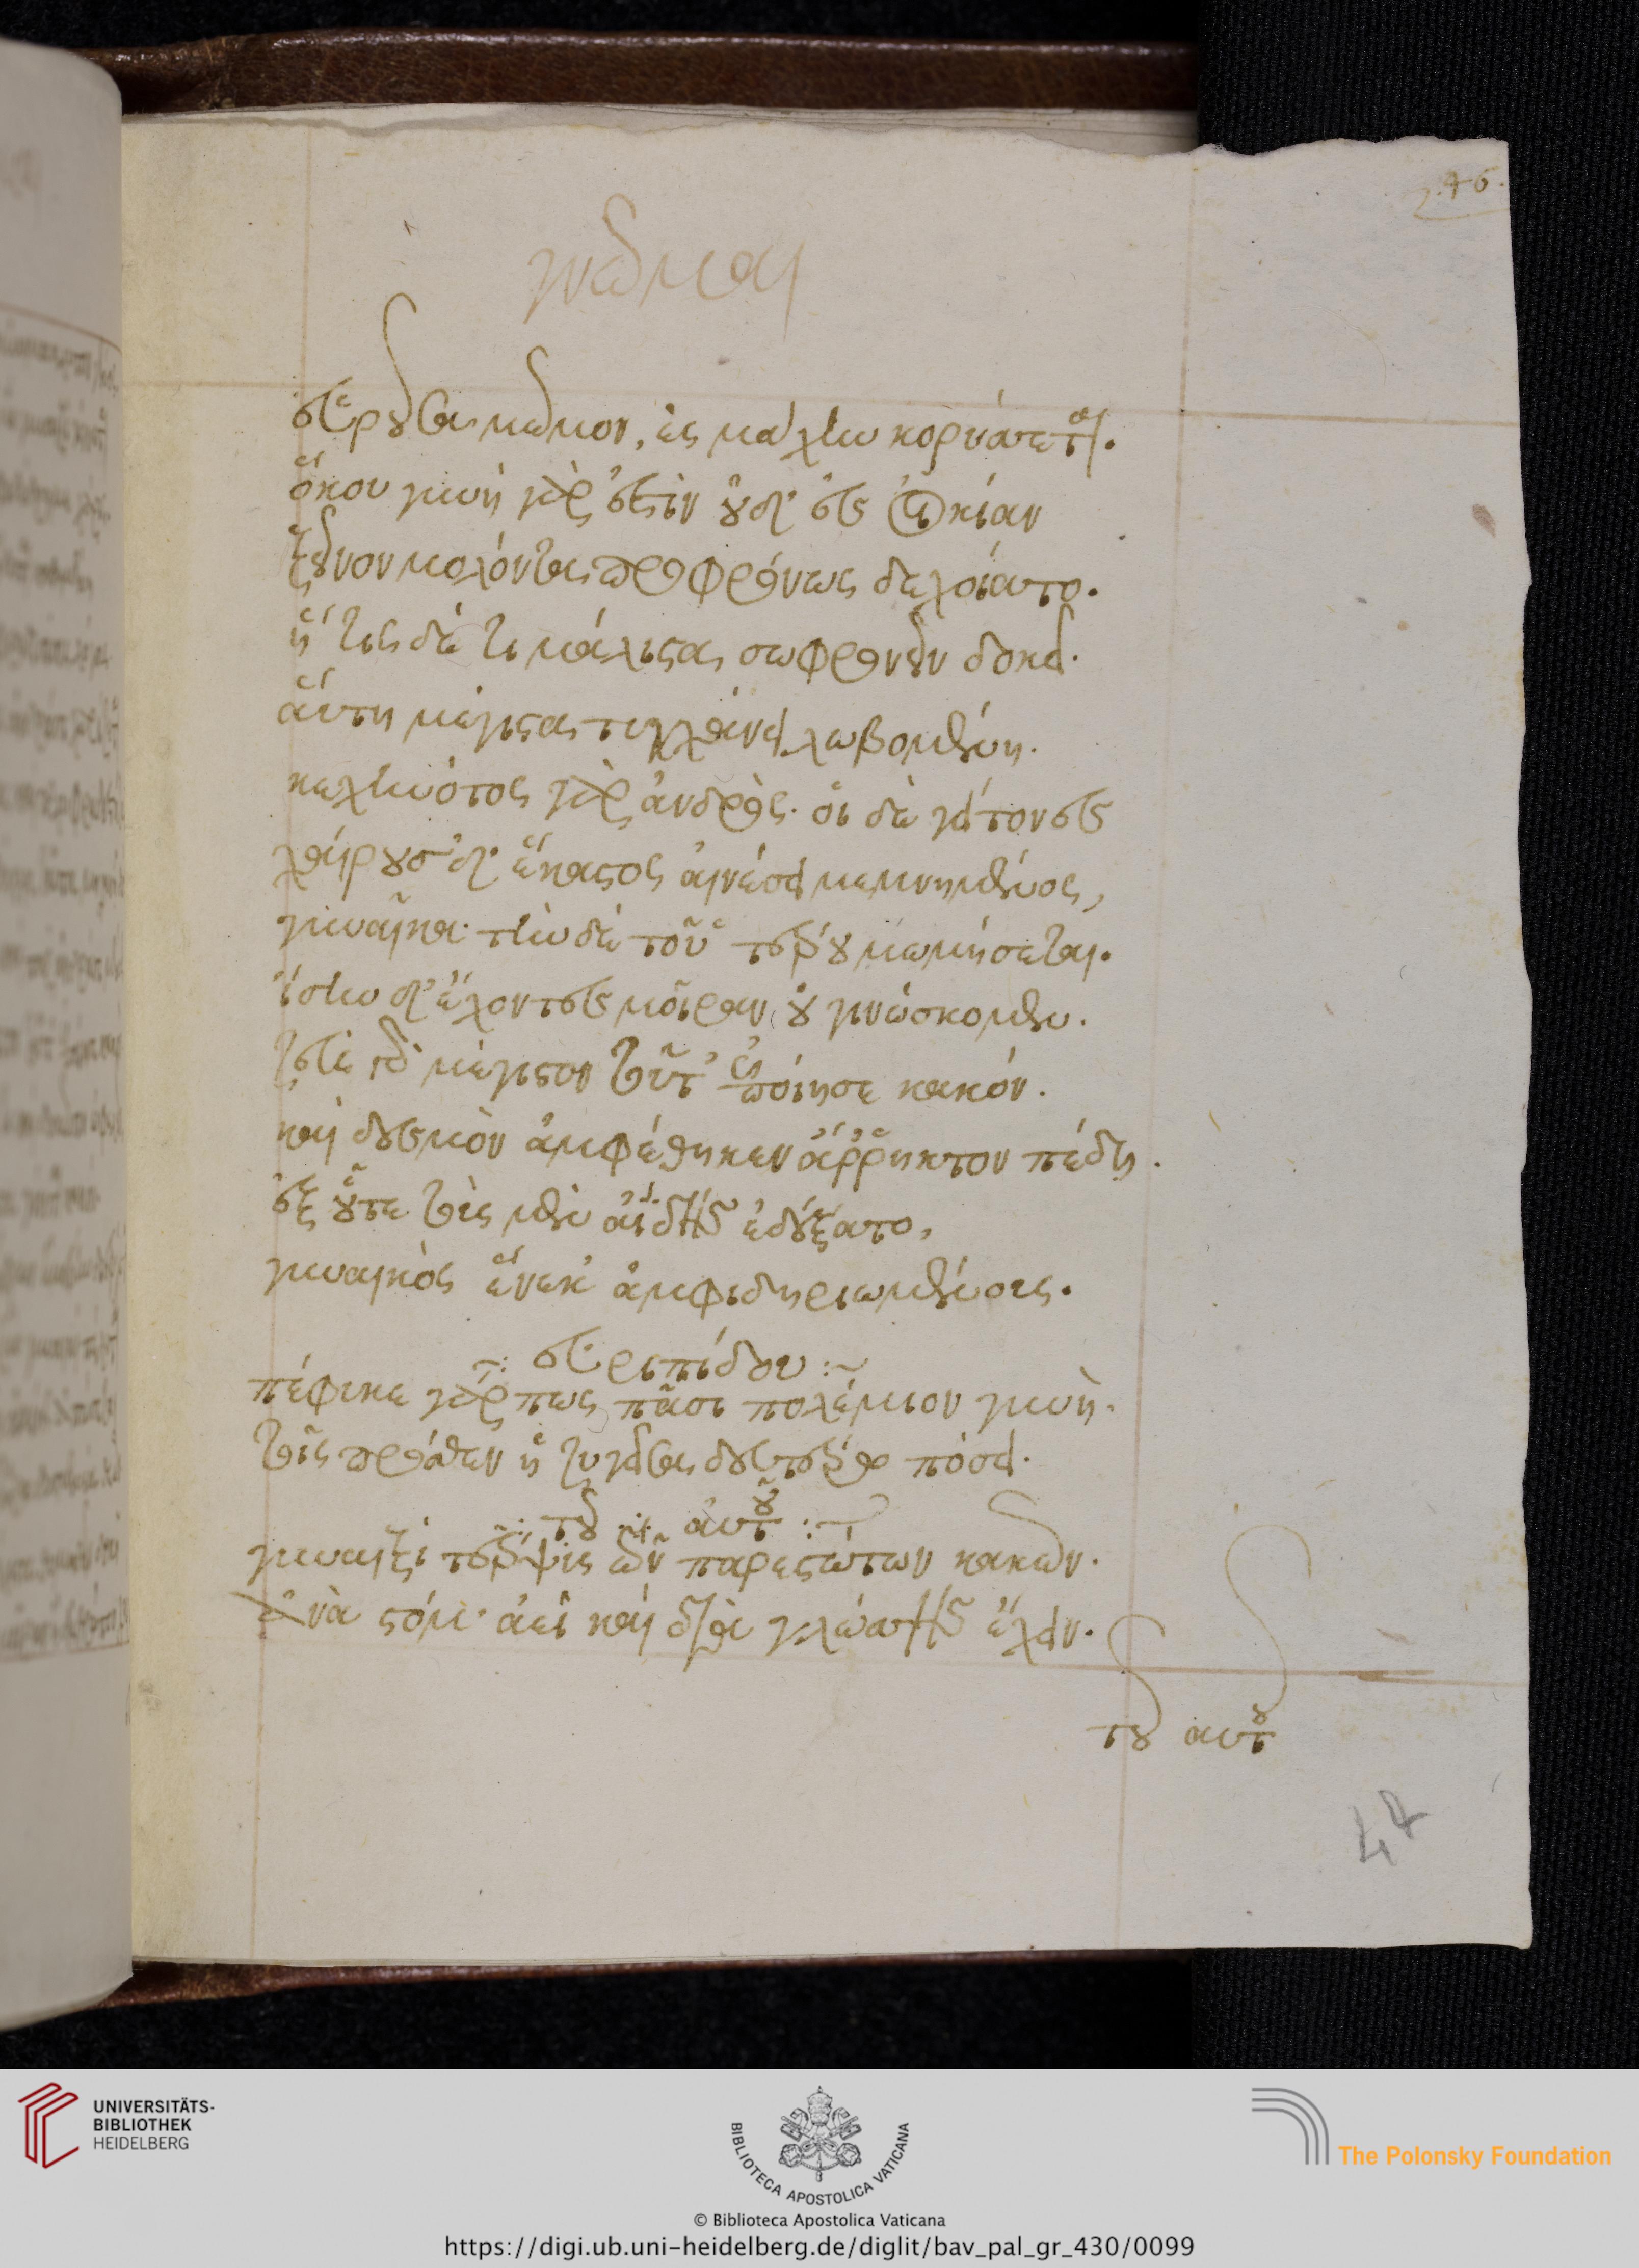 46.
γνῶμαι
εὑροῦσα μῶμον, ἐς μάχην κορύσσεται.
ὅκου γυνὴ γὰρ ἐστὶν οὐδ' ἐς οἰκίαν
ξεῖνον μολόντα προφρόνως δεχοίατο.
ἥτις δέ τι μάλιστα σωφρονεῖν δοκεῖ.
αὕτη μέγιστα τυγχάνει λωβομένη.
κεχηνότος γὰρ ἀνδρὸς. οἱ δὲ γείτονες
χαίρουσ' δ' ἕκαστος αἰνέσει μεμνημένος,
γυναῖκα. τὴν δὲ τοῦ ἑτέρου μωμήσεται.
ἴσην δ' ἔχοντες μοῖραν, οὐ γινώσκομεν.
ζεὺς γὰρ μέγιστον τοῦτ' ἐποίησε κακόν.
καὶ δεσμὸν ἀμφέθηκεν ἄῤῥηκτον πέδη.
ἐξ οὗτε τοὺς μὲν ἀΐδης ἐδέξατο,
γυναικὸς ἕνεκ' ἀμφιδηριωμένους.
εὐριπίδου :~
πέφυκε γάρ πως πᾶσι πολέμιον γυνὴ.
τοῖς πρόσθεν ἡ ζυγεῖσα δευτέρῳ πόσει.
τοῦ αὐτοῦ :~
γυναιξὶ τέρψις τῶν παρεστώτων κακῶν.
ἀνὰ στόμ' ἀεὶ καὶ διὰ γλώσσης ἔχειν.
τοῦ αὐτοῦ
47
UNIVERSITÄTS-
BIBLIOTHEK
HEIDELBERG
BIBLIOTECA APOSTOLICA VATICANA
The Polonsky Foundation
© Biblioteca Apostolica Vaticana
https://digi.ub.uni-heidelberg.de/diglit/bav_pal_gr_430/0099